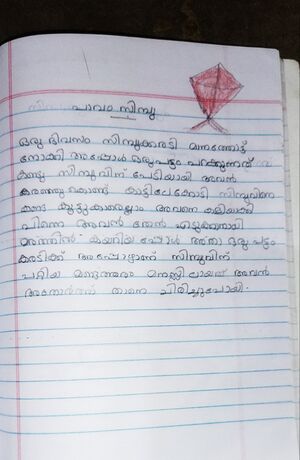 പാവം സിമ്പു
ഒരു ദിവസം സിമ്പുക്കരടി മാനത്തോട്ട്
നോക്കി അപ്പോൾ ഒരു പട്ടം പറക്കുന്നത്
കണ്ടു സിമ്പുവിന് പേടിയായി അവൻ
കരഞ്ഞു കൊണ്ട് കാട്ടിലേക്കോടി സിമ്പുവിനെ
കണ്ട കൂട്ടുകാരെല്ലാം അവനെ കളിയാക്കി
പിന്നെ അവൻ തേൻ എടുക്കുന്നതായി
മരത്തിൽ കയറിയപ്പോൾ അതാ ഒരു പട്ടം
കരടിക്ക് അപ്പോഴാണ് സിമ്പുവിന്
പറ്റിയ മണ്ടത്തരം മനസ്സിലായത് അവൻ
അതോർത്ത് താനെ ചിരിച്ചുപോയി.